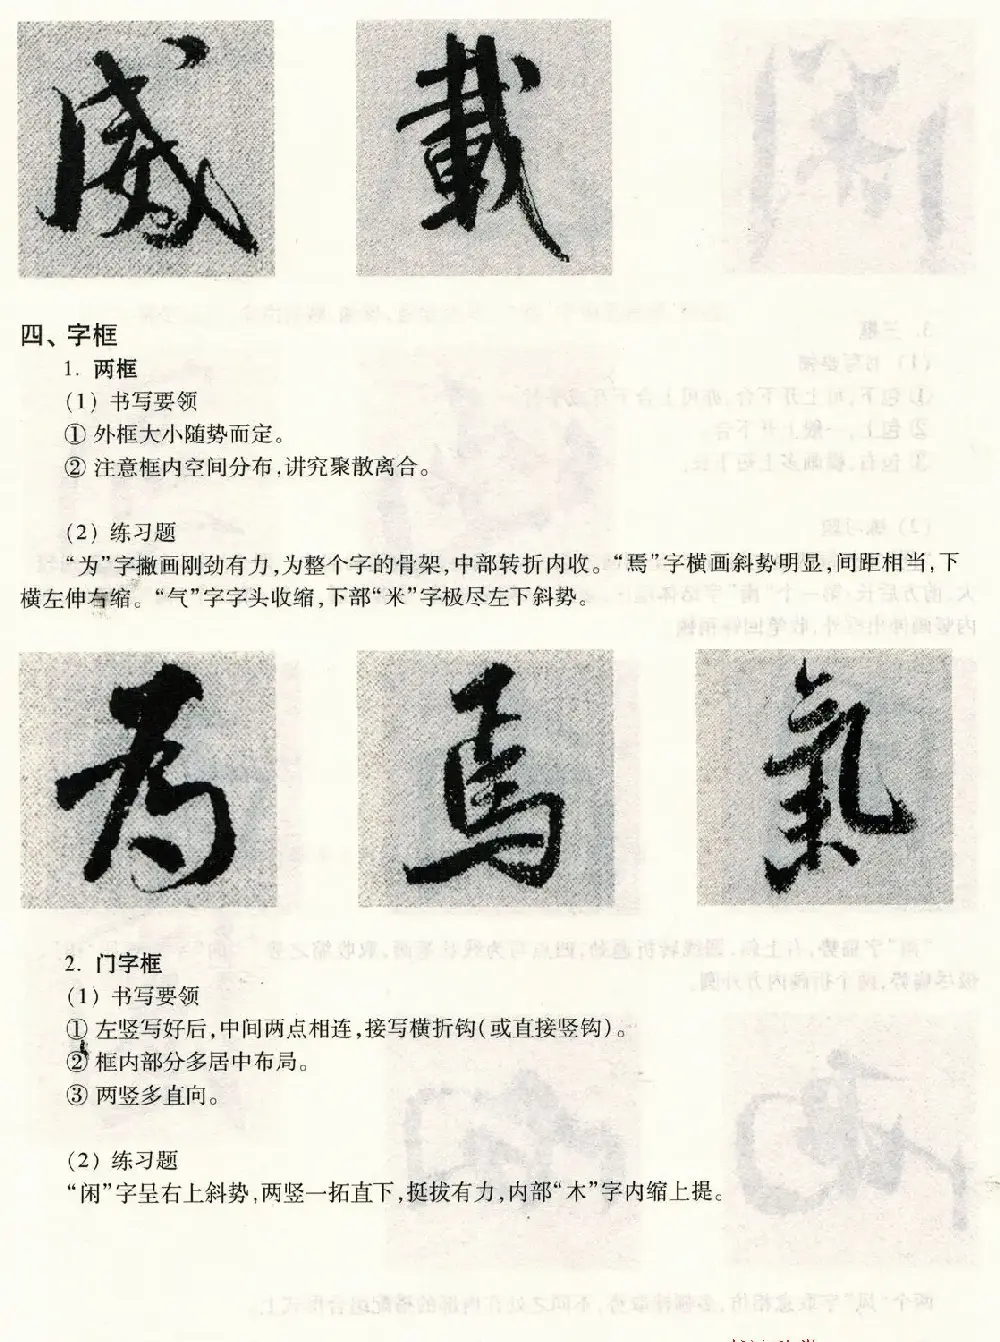 威 載
四、字框
1. 两框
(1) 书写要领
① 外框大小随势而定。
② 注意框内空间分布,讲究聚散离合。
(2) 练习题
“为”字撇画刚劲有力,为整个字的骨架,中部转折内收。“焉”字横画斜势明显,间距相当,下
横左伸右缩。“气”字字头收缩,下部“米”字极尽左下斜势。
為 焉 氣
2. 门字框
(1) 书写要领
① 左竖写好后,中间两点相连,接写横折钩(或直接竖钩)。
② 框内部分多居中布局。
③ 两竖多直向。
(2) 练习题
“闲”字呈右上斜势,两竖一拓直下,挺拔有力,内部“木”字内缩上提。